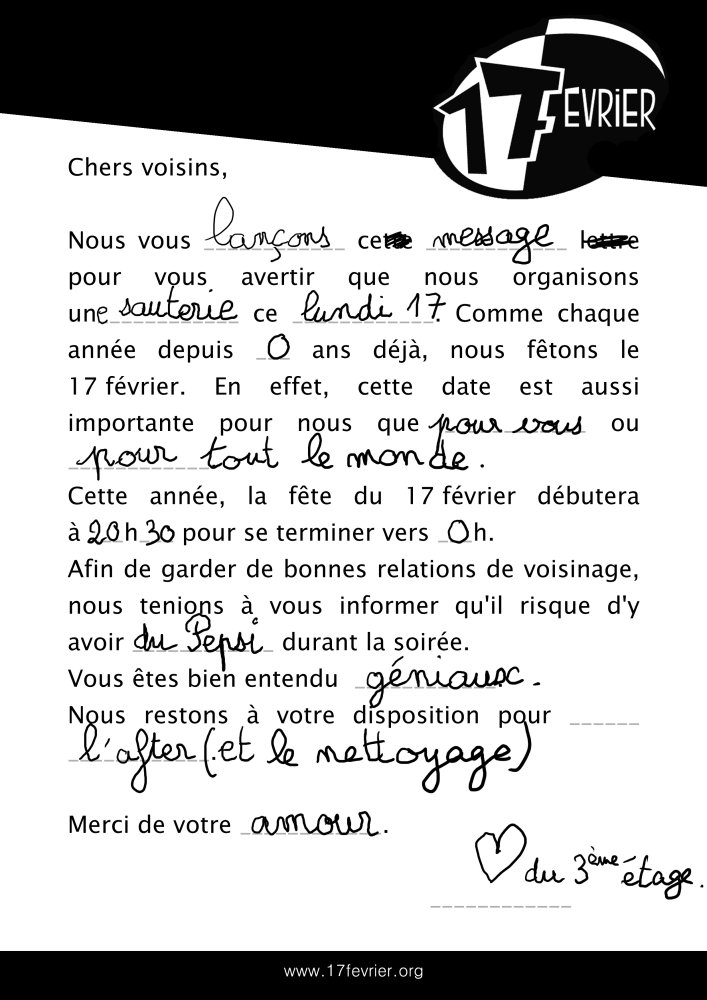 17 FEVRIER
Chers voisins,
Nous vous lançons cette message lettre
pour vous avertir que nous organisons
une sauterie ce lundi 17. Comme chaque
année depuis 0 ans déjà, nous fêtons le
17 février. En effet, cette date est aussi
importante pour nous que pour vous ou
pour tout le monde.
Cette année, la fête du 17 février débutera
à 20h30 pour se terminer vers 0h.
Afin de garder de bonnes relations de voisinage,
nous tenions à vous informer qu'il risque d'y
avoir du Pepsi durant la soirée.
Vous êtes bien entendu géniaux.
Nous restons à votre disposition pour
l'after (et le nettoyage)
Merci de votre amour.
♡ du 3ème étage.
www.17fevrier.org